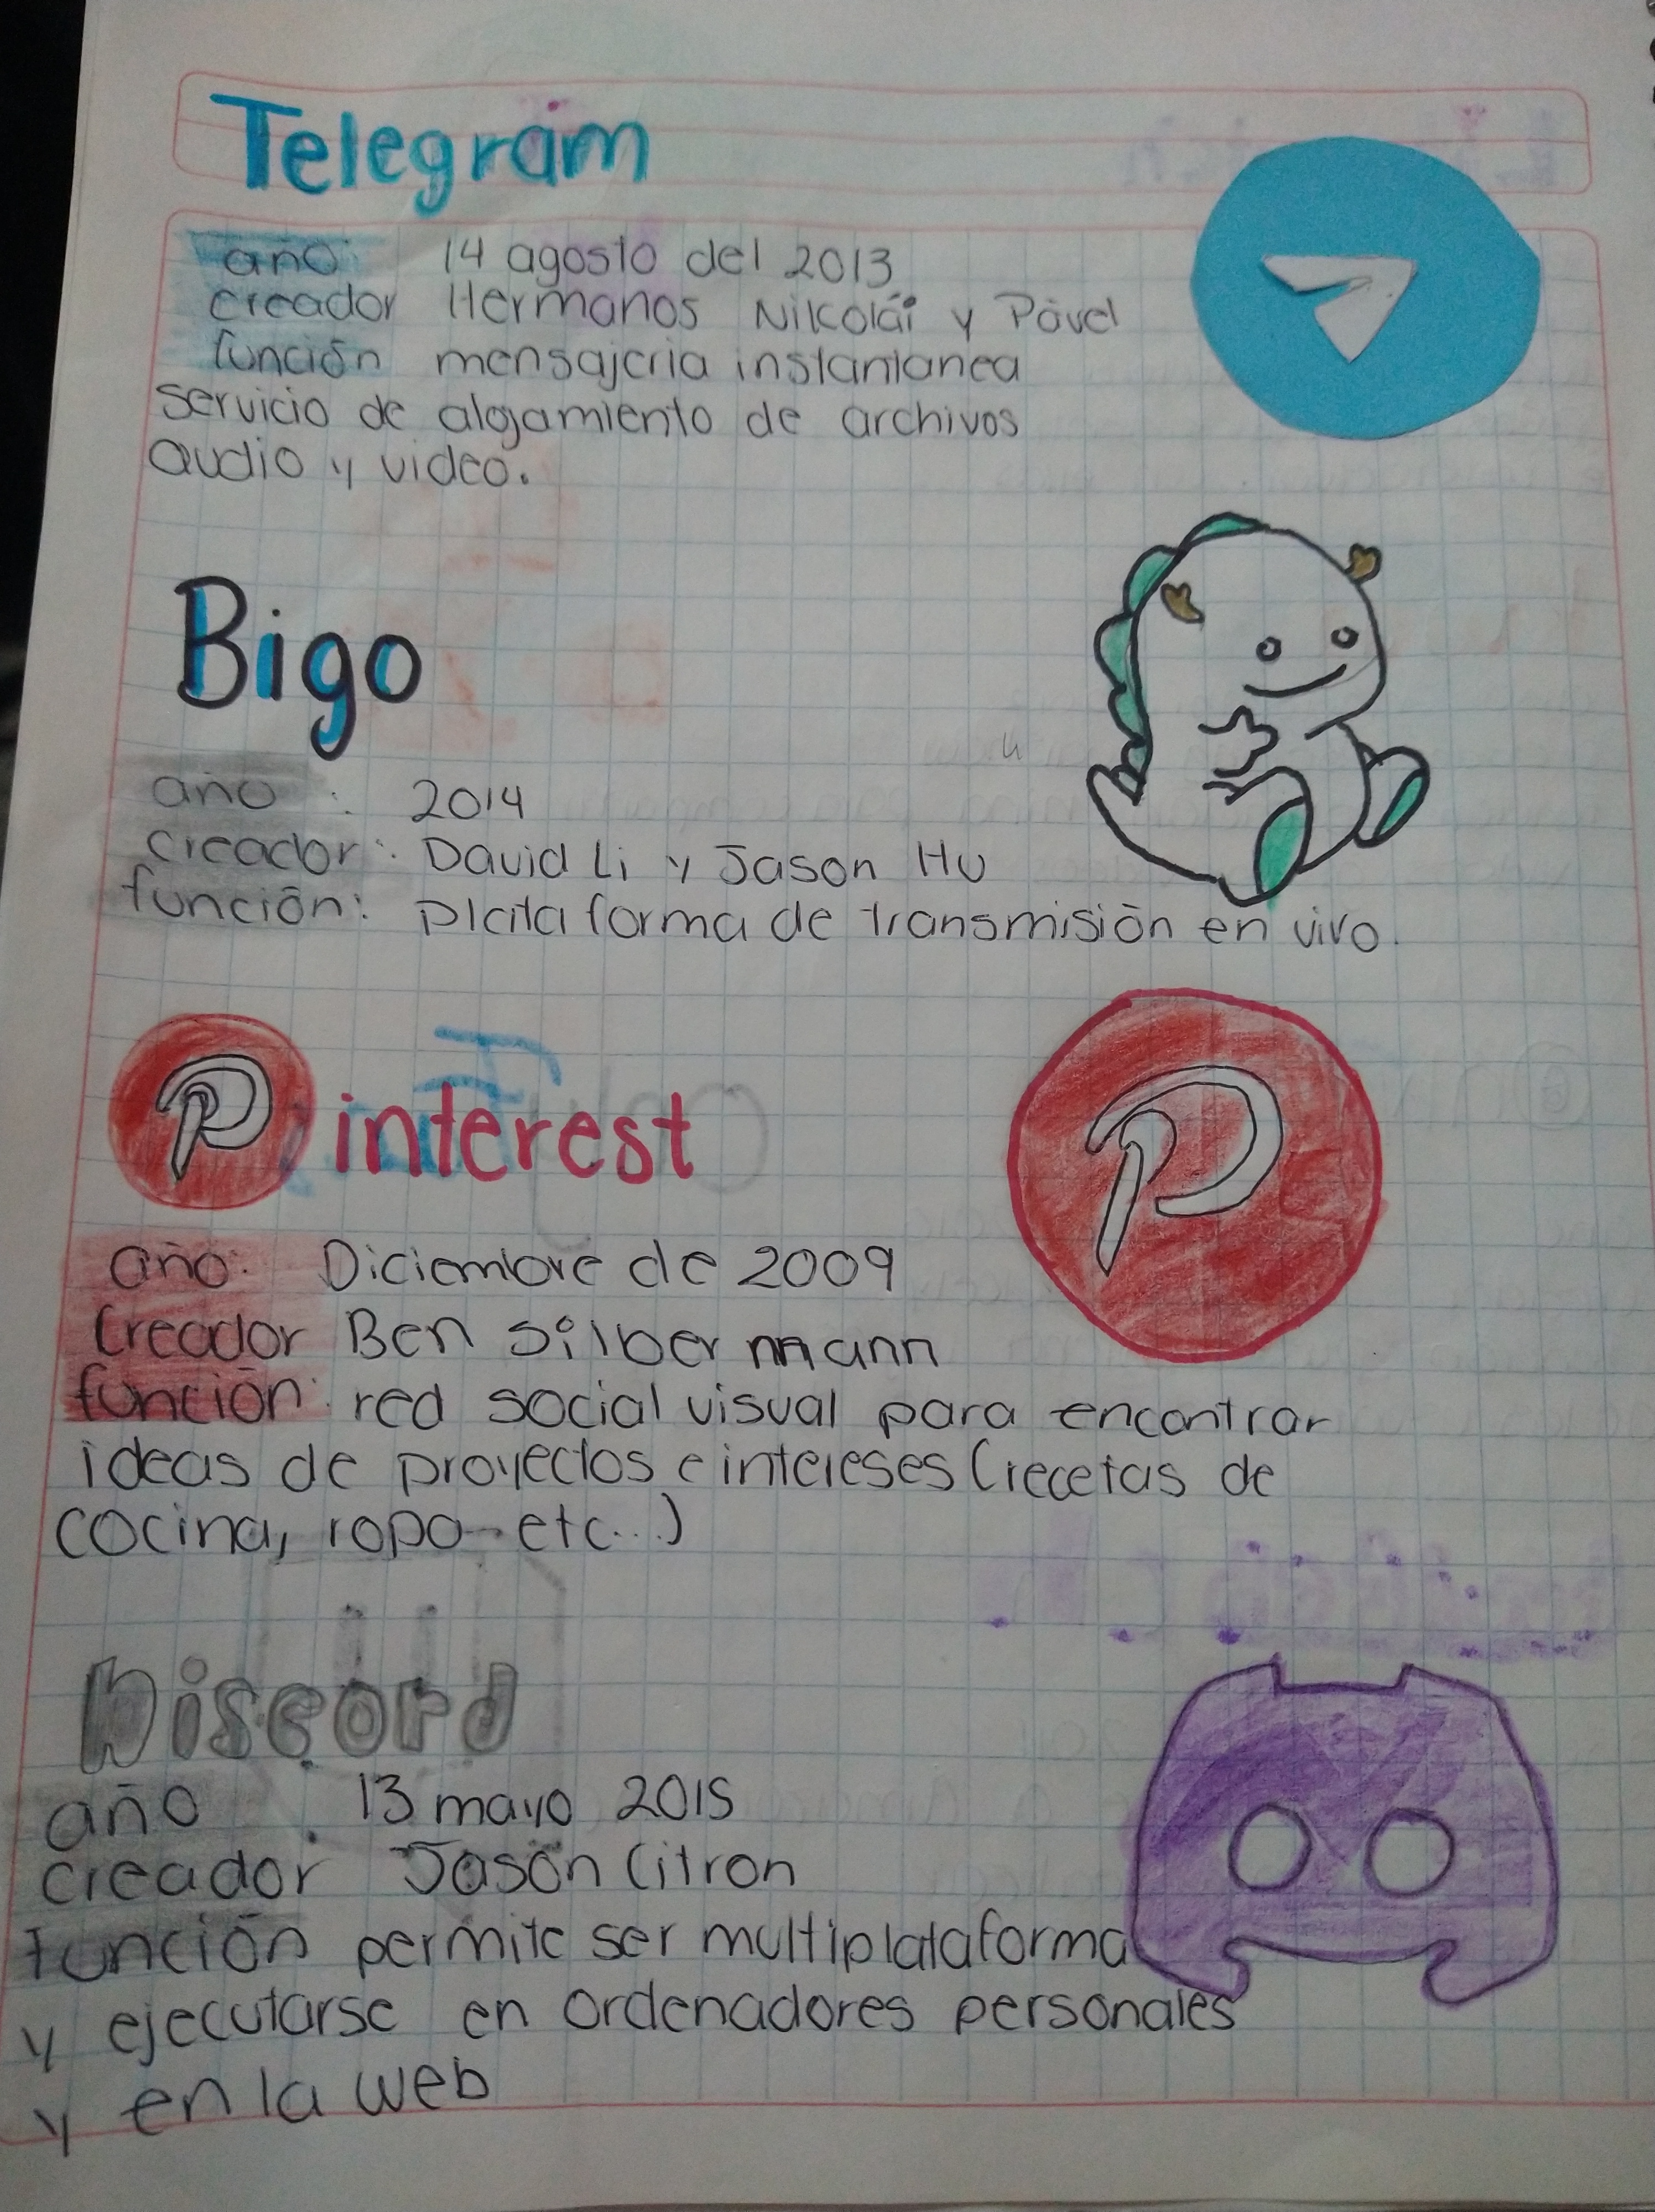 Telegram
año: 14 agosto del 2013
creador Hermanos Nikolái y Pável
función mensajeria instantanea
servicio de alojamiento de archivos
audio y video.
Bigo
año : 2014
creador: David Li y Jason Hu
función: Plataforma de transmisión en vivo.
Pinterest
P
año: Diciembre de 2009
Creador Ben Silbermann
función: red social visual para encontrar
ideas de proyectos e intereses (recetas de
cocina, ropa etc...)
Discord
año 13 mayo 2015
creador Jasón Citron
función permite ser multiplataforma
y ejecutarse en ordenadores personales
y en la web